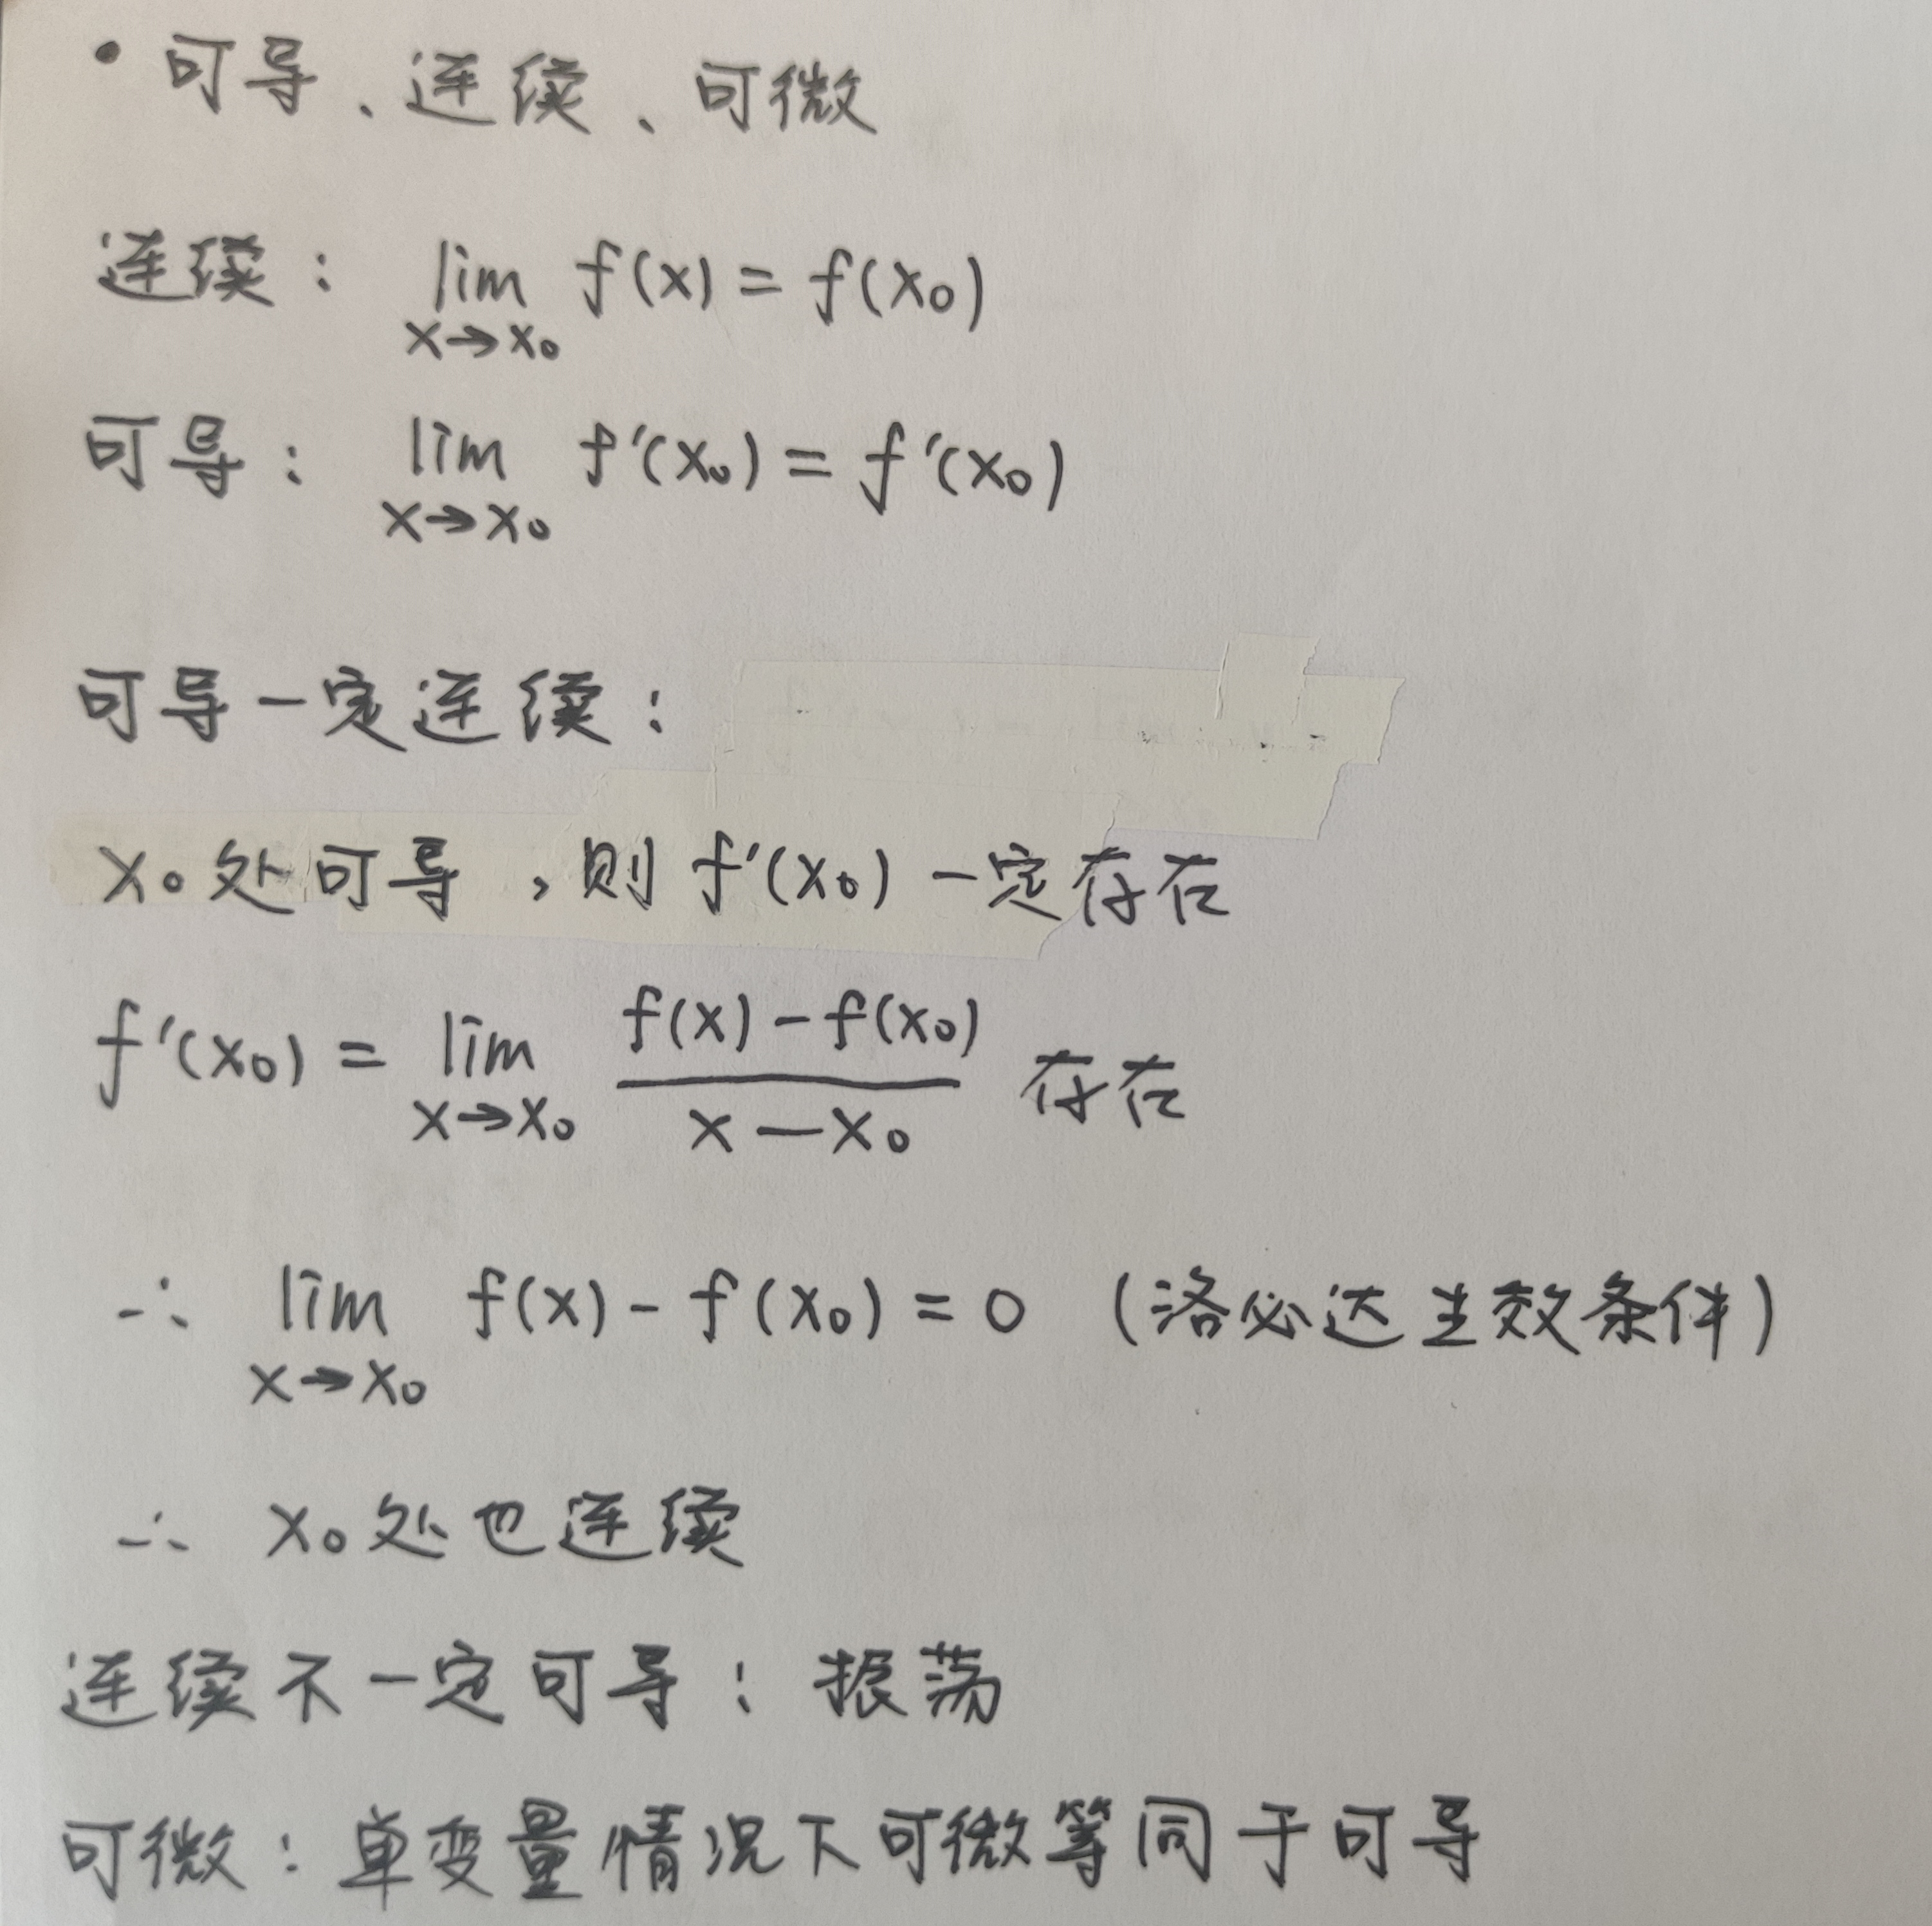 • 可导、连续、可微
连续: lim x→x₀ f(x) = f(x₀)
可导: lim x→x₀ f'(x₀) = f'(x₀)
可导一定连续:
x₀处可导,则 f'(x₀) 一定存在
f'(x₀) = lim x→x₀ (f(x) - f(x₀)) / (x - x₀) 存在
∴ lim x→x₀ f(x) - f(x₀) = 0 (洛必达生效条件)
∴ x₀处也连续
连续不一定可导: 振荡
可微: 单变量情况下可微等同于可导